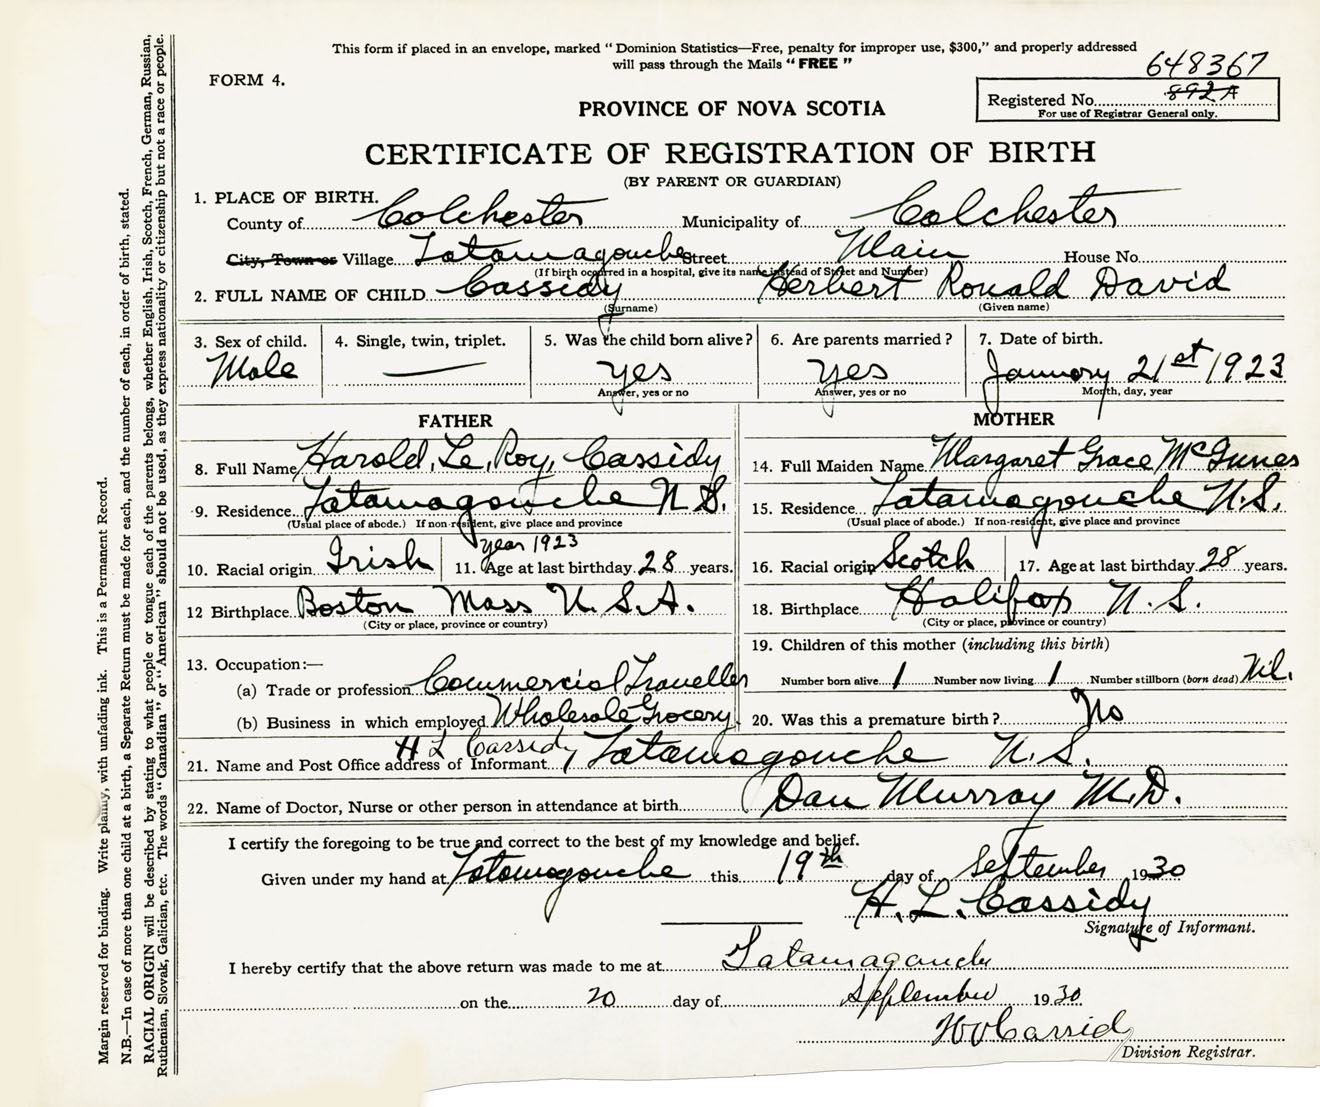 This form if placed in an envelope, marked "Dominion Statistics—Free, penalty for improper use, $300," and properly addressed
will pass through the Mails "FREE"
648367
FORM 4.
Registered No. 892A
For use of Registrar General only.
PROVINCE OF NOVA SCOTIA
CERTIFICATE OF REGISTRATION OF BIRTH
(BY PARENT OR GUARDIAN)
1. PLACE OF BIRTH.
County of Colchester Municipality of Colchester
City, Town or Village Tatamagouche Street Main House No.
(If birth occurred in a hospital, give its name instead of Street and Number)
2. FULL NAME OF CHILD Cassidy Herbert Ronald David
(Surname) (Given name)
3. Sex of child. 4. Single, twin, triplet. 5. Was the child born alive? 6. Are parents married? 7. Date of birth.
Male — yes yes January 21st 1923
Answer, yes or no Answer, yes or no Month, day, year
FATHER MOTHER
8. Full Name Harold, Le, Roy, Cassidy 14. Full Maiden Name Margaret Grace
9. Residence Tatamagouche N.S. 15. Residence Tatamagouche N.S.
(Usual place of abode.) If non-resident, give place and province (Usual place of abode.) If non-resident, give place and province
year 1923
10. Racial origin Irish 11. Age at last birthday 28 years. 16. Racial origin Scotch 17. Age at last birthday 28 years.
12 Birthplace Boston Mass U.S.A. 18. Birthplace Halifax N.S.
(City or place, province or country) (City or place, province or country)
13. Occupation:— 19. Children of this mother (including this birth)
(a) Trade or profession Commercial Traveller Number born alive 1 Number now living 1 Number stillborn (born dead) Nil.
(b) Business in which employed Wholesale Grocery. 20. Was this a premature birth? No
21. Name and Post Office address of Informant H L Cassidy, Tatamagouche N.S.
22. Name of Doctor, Nurse or other person in attendance at birth Dan Murray M.D.
I certify the foregoing to be true and correct to the best of my knowledge and belief.
Given under my hand at Tatamagouche this 19th day of September 1930
H. L. Cassidy
Signature of Informant.
I hereby certify that the above return was made to me at Tatamagouche
on the 20 day of September 1930
Division Registrar.
Margin reserved for binding. Write plainly, with unfading ink. This is a Permanent Record.
N.B.—In case of more than one child at a birth, a Separate Return must be made for each, and the number of each, in order of birth, stated.
RACIAL ORIGIN will be described by stating to what people or tongue each of the parents belongs, whether English, Irish, Scotch, French, German, Russian,
Ruthenian, Slovak, Galician, etc. The words "Canadian" or "American" should not be used, as they express nationality or citizenship but not a race or people.